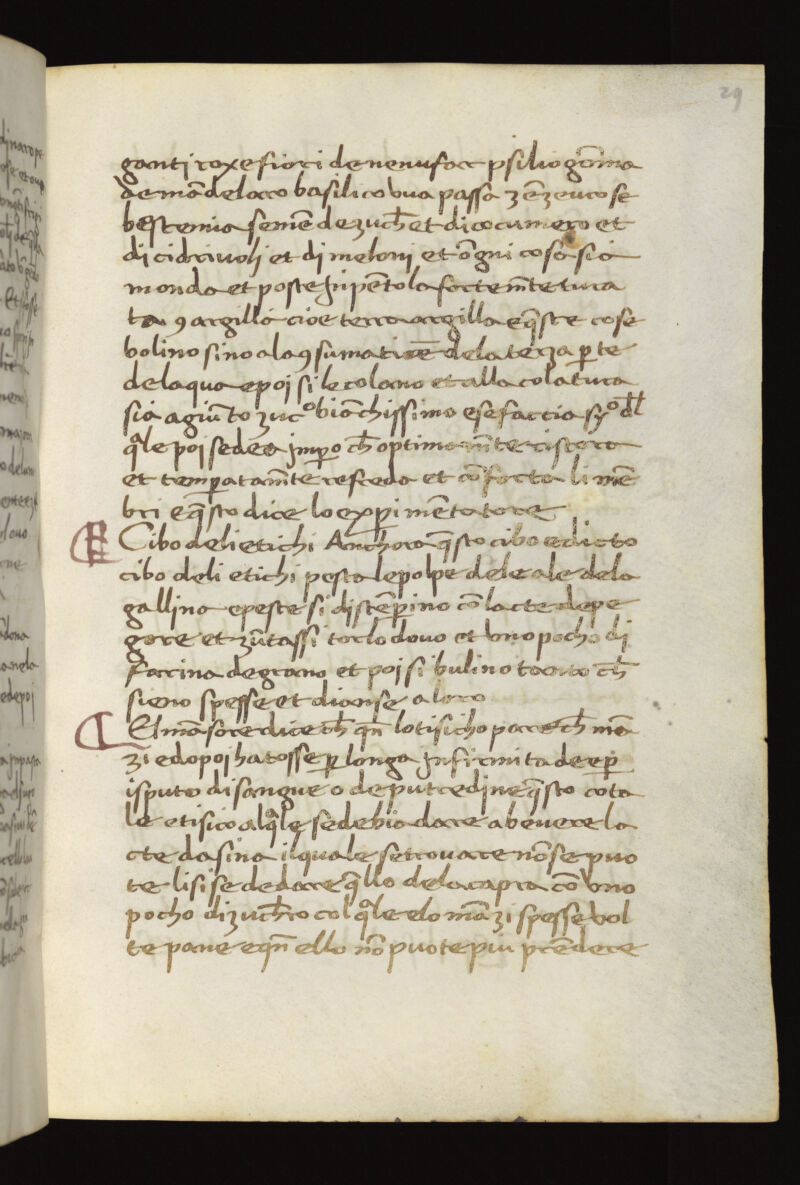 29
ganti roxe fiori de nenufar psilio gōma
de mādelaro basilico uua passa zēzeuro se
bestemia semē de zucħ et di cocumero et
di cidriuoli et di meloni et ōgni cosa sia
monda et poste jn pētola fortemēte tura
ta ꝯ argilla cioe terra argilla e q̄ste cose
bolino sino a la ꝯsumatiōe de la terza pte
de laqua e poi si le colano et alla colatura
sia agiūto zucᵒ biāchissimo e se faccia syᵒ dl
q̄le poi se dea jmpo cħ optimamēte ristora
et temperatamēte refreda et cōforta li mē
bri e q̄sto dice lo experimentatore
Cibo deli etichi Anchora q̄sto cibo e dicto
cibo deli etichi pesta le polpe dele ale dela
gallina e peste si distēperino cō lacte de pe
gore et zūtassi torlo douo et uno pocho di
farina de grano et poi si bulino tanto cħ
sieno spesse et dianse a loro
El māsore dice cħ qn̄ lo tisicho pare cħ mā
zi e dopoi ha tosse p longa jnfirmita de ep
isputo di sangue o de putredine q̄sto cota
le etisico al q̄le se debia dare a beuere la
cte dasina il quale se trouare nō se puo
te lisi se de dare q̄llo dela capra cō uno
pocho di zucħro col q̄le elo māzi spesse uol
te pane e qn̄ ello nō puote piu prēdere